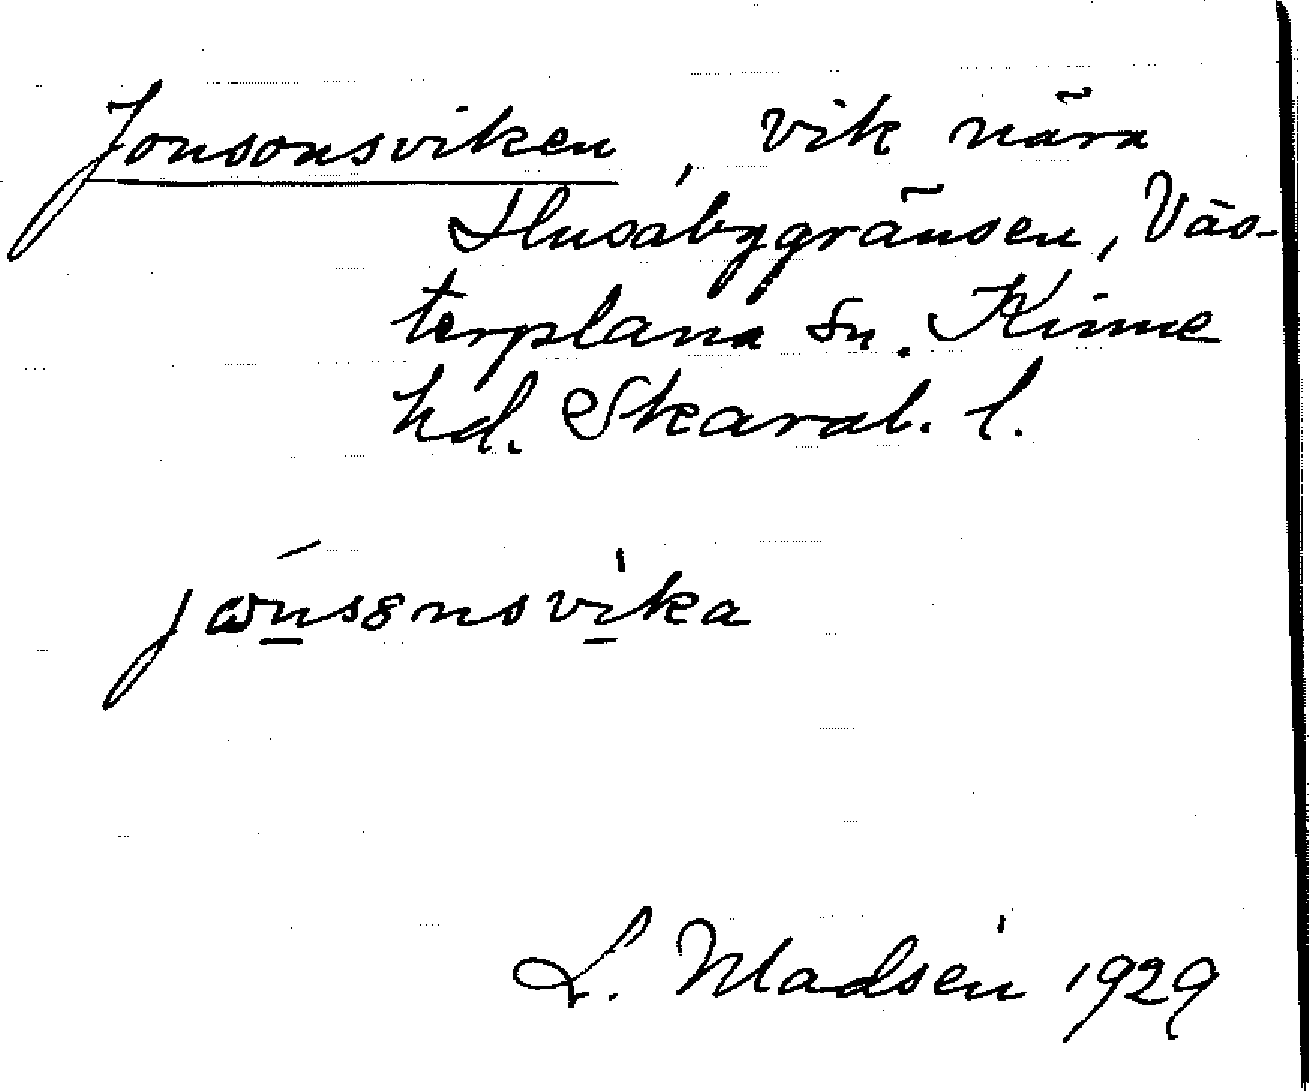 Jonsonsviken, vik nära
Husabygränsen, Väs-
terplana sn. Kinne
hd. Skarab. l.
L. Madsén 1929